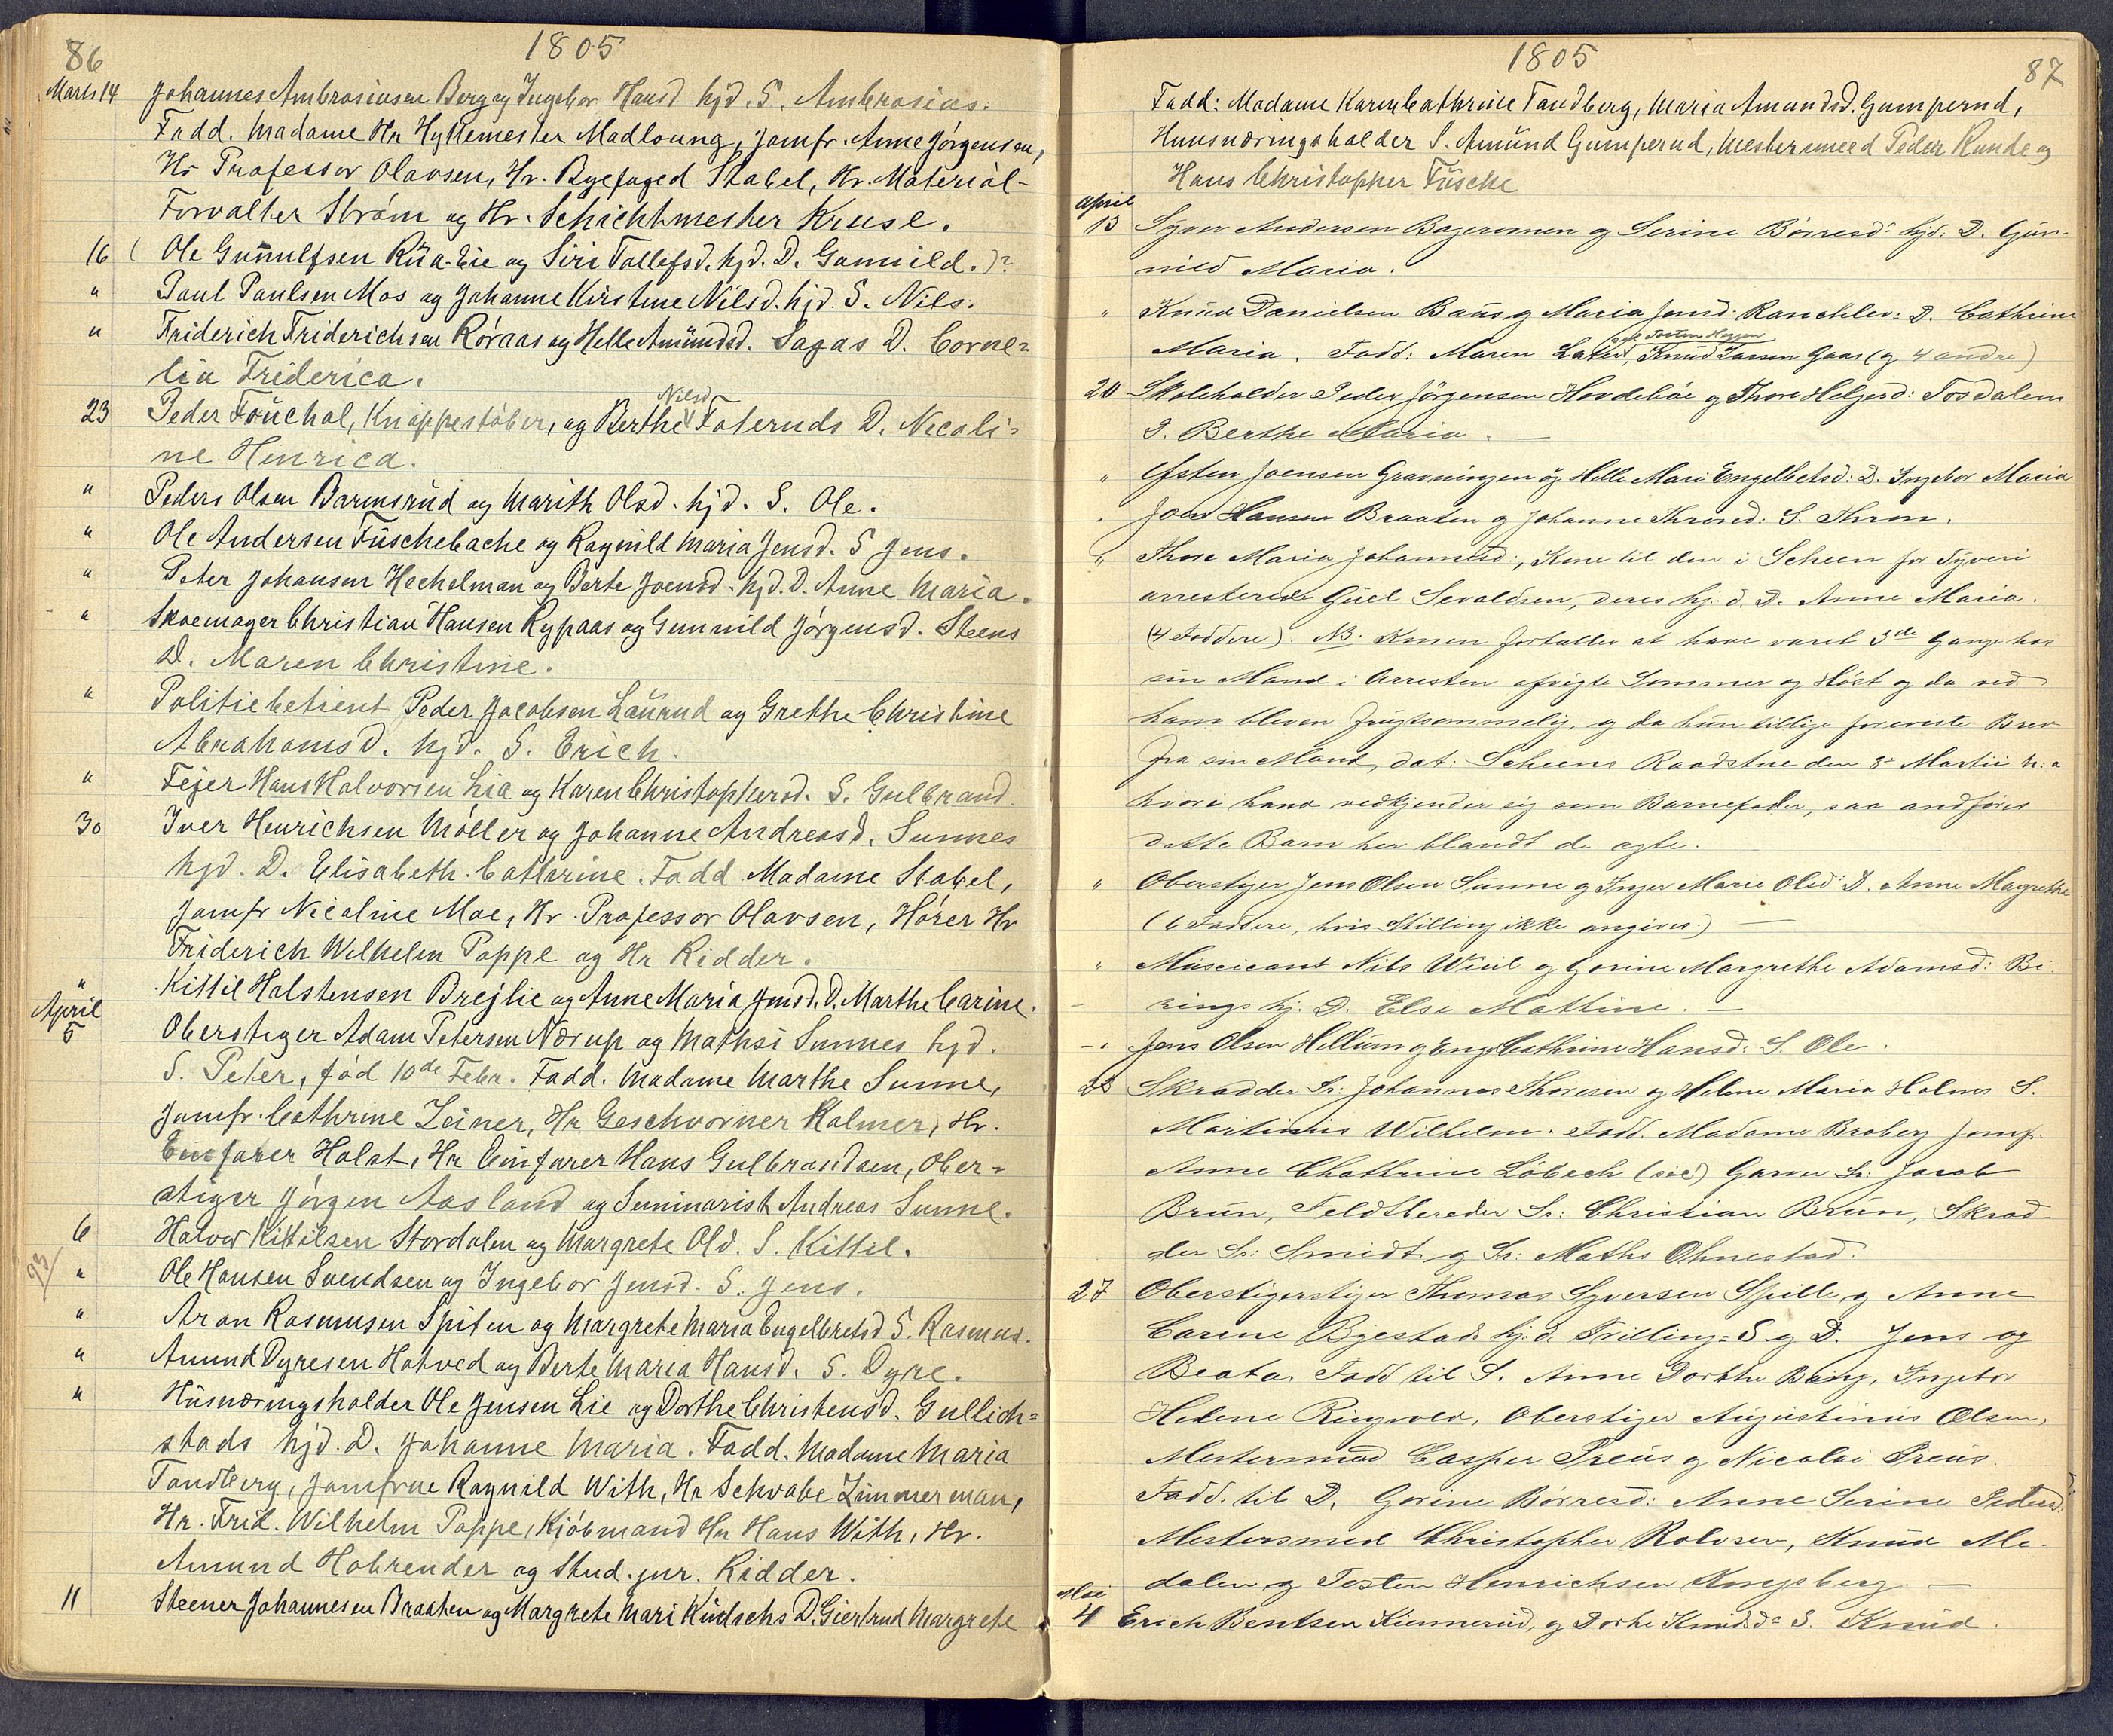 86
1805
Marts 14 Johannes Ambrosiusen Berg og Ingebor Hansd hjd. S. Ambrosius.
Fadd. Madame Hr Hyttemester Madloung, Jomfr. Anne Jørgensen,
Hr Professor Olavsen, Hr. Byefoged Stabel, Hr. Material-
Forvalter Strøm og Hr. Schichtmester Kruse.
16 ( Ole Gunnulfsen Rüa-Eie og Siri Tollefsd. hjd. D. Gunnild.)?
" Paul Paulsen Mos og Johanne Kirstine Nilsd. hjd. S. Nils.
" Friderich Friderichsen Røraas og Helle Amündsd. Sagas D. Corne=
lia Friderica.
Nilsd
23 Peder Foüchal, Knappestøber, og Berthe Foteruds D. Necoli=
ne Henrica.
" Peders Olsen Barmsrüd og Marith Olsd. hjd. S. Ole.
" Ole Andersen Füschebache og Ragnild Maria Jensd. S Jens.
" Peter Johansen Hechelman og Berte Joensd. hjd. D. Anne Maria.
" Skoemager Christian Hansen Rypaas og Gunnild Jørgensd. Steens
D. Maren Christine.
" Politiebetient Peder Jacobsen Laürud og Grethe Christine
Abrahamsd. hjd. S. Erich.
" Fejer Hans Halvorsen Lia og Karen Christophersd. S. Gulbrand.
30 Iver Henrichsen Møller og Johanne Andreasd. Sunnes
hjd. D. Elisabeth Cathrine. Fadd Madame Stabel,
Jomfr Nicoline Moe, Hr. Professor Olavsen, Hører Hr
Friderich Wilhelm Poppe og Hr Ridder.
" Kittil Halstensen Brejlie og Anne Maria Jensd. D. Marthe Carine.
April
5 Oberstiger Adam Petersen Nørup og Mathsi Sunnes hjd.
S. Peter, fød 10de Febr. Fadd. Madame Marthe Sunne,
Jomfr. Cathrine Zeiner, Hr Geschvorner Kalmer, Hr.
Einfarer Holst, Hr Einfarer Hans Gulbrandsen, Ober=
stiger Jørgen Aasland og Seminarist Andreas Sunne.
6 Halvor Kittilsen Stordalen og Margrete Old. S. Kittil.
93 " Ole Hansen Svendsen og Ingebor Jensd. S. Jens.
" Aron Rasmusen Spiten og Margrete Maria Engelbretsd S. Rasmus.
" Amund Dyresen Hotved og Berte Maria Hansd. S. Dyre.
" Hüsnæringsholder Ole Jensen Lie og Dorthe Christensd. Gullich=
stads hjd. D. Johanne Maria. Fadd. Madame Maria
Tandberg, Jomfrue Ragnild With, Hr Schvabe Zimmerman,
Hr. Frid. Wilhelm Poppe, Kjøbmand Hr Hans With, Hr.
Amund Hobrender og Stud. jur. Ridder.
11 Steener Johannesen Braaten og Margrete Mari Küdschs D. Giertrud Margrete
1805
87
Fadd: Madame Karen Cathrine Tandberg, Maria Amundsd. Gumperud,
Huusnæringsholder S. Amünd Gumperud, Mestersmeed Peder Runde og
Hans Christopher Füsche
April
13 Syver Andersen Bagermon og Serine Børresd: hjd: D. Gün-
nild Maria.
" Knüd Danielsen Baüs og Maria Jensd: Ranchlev: D. Cathrine
og Torsten Hagen
Maria. Fadd: Maren Lators, Knüd Larsen Gaas (og 4 andre)
20 Skoleholder Peder Jörgensen Hovdebøe og Thore Helgesd: Tosdalens
D. Berthe Maria. —
" Efsten Joensen Gravningen og Helle Mari Engelbetsd: D. Ingebor Maria
" Joen Hansen Braaten og Johanne Thronsd: S. Thron.
" Thore Maria Johannesd:, Kone til den i Scheen for Tyveri
arresterede Giül Sevaldsen, deres hj. d. D. Anne Maria.
(4 Faddere). NB. Konen fortaller at have varet 3de Gange hos
sin Mand i Arresten afvigte Sommer og Høst og da ved
ham bleven frügtsommelig, og da hun tillige foreviste Brev
fra sin Mand, dat: Scheens Raadstüe den 8 Martii h: a
hvori hand vedkjender sig som Barnefader, saa andføres
dette Barn her blandt de ægte.
" Oberstiger Jens Olsen Sünne og Inger Marie Olsd: D. Anne Magrethe
(6 Faddere, hvis Stilling ikke angives.) —
" Müscicant Nils Wiül og Gorine Margrethe Adamsd: Bi
rings hj. D. Else Mattine. —
" Jens Olsen Hellüm og Eng. Cathrine Hansd: S. Ole.
22 Skrædder Sr: Johannes Thoresen og Helene Maria Holms S.
Martinüs Wilhelm. Fadd. Madame Broberg Jomfr.
Anne Chathrine Löbech (sic) Garver Sr: Jacob
Brün, Feldtbereder Sr: Christian Brün, Skræd-
der Sr: Smidt og Sr: Maths Ohnestad.
27 Oberstigerstiger Thomas Syversen Spille og Anne
Carine Byestads hj. d. Trilling=S og D. Jens og
Beata. Fadd til S. Anne Dorthe Bing, Ingebor
Helene Ringvold, Oberstiger Augüstinüs Olsen,
Mestersmed Casper Preüs og Nicolai Preüs.
Fadd. til D. Gorine Børresd: Anne Serine Pedersd:
Mestersmed Christopher Rolvsen, Knud Me-
dalen og Testen Henrichsen Kongsberg. —
Mai
4 Erich Bentsen Kiennerüd, og Dorthe Knudsd: S. Knüd.